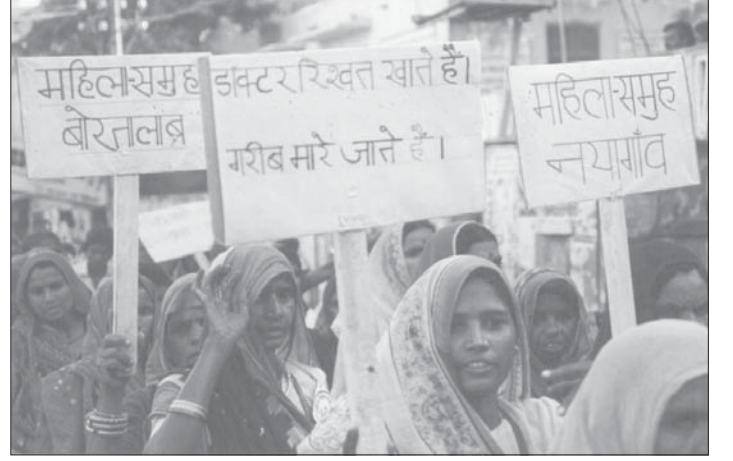 महिला-समुह
बोरतालाब
डाक्टर रिश्वत खाते हैं।
गरीब मारे जाते हैं।
महिला-समुह
नयागाँव